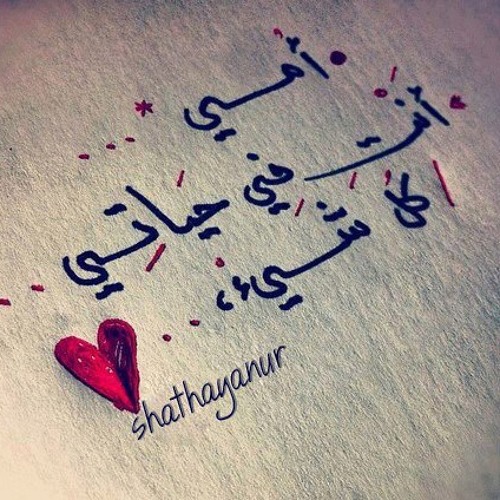 أمي
أنت في حياتي
كل شيء،،
shathayanur